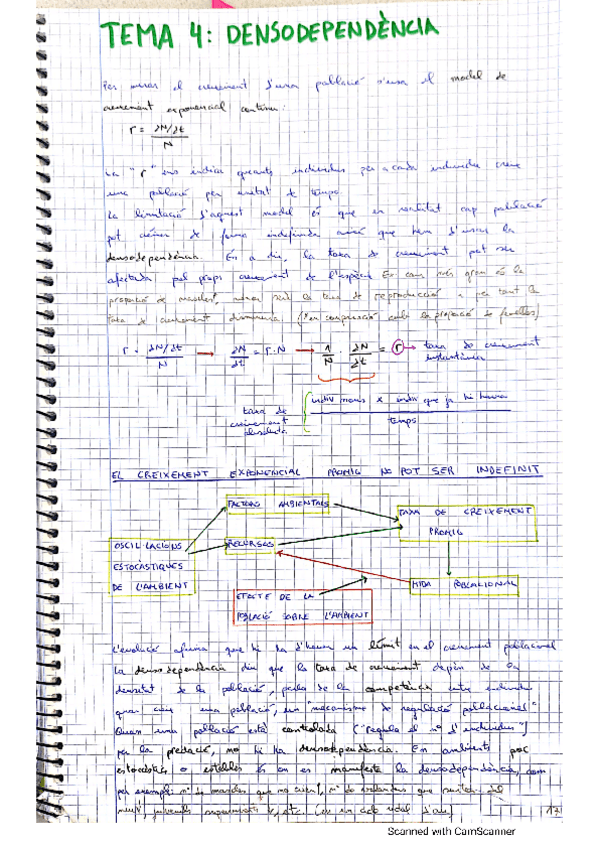 TEMA 4: DENSODEPENDÈNCIA
Per mirar el creixement d'una població s'usa el model de
creixement exponencial continu:
r = ∂N/∂t / N
La "r" ens indica quants individus per a cada individu creix
una població per unitat de temps.
La limitació d'aquest model és que en realitat cap població
pot créixer de forma indefinida així que hem d'usar la
densodependència. És a dir, la taxa de creixement pot ser
afectada pel propi creixement de l'espècie. més gran és la
proporció de mascles, menor serà la taxa de reproducció i per tant la
taxa de creixement disminuirà (en comparació amb la proporció de femelles)
r = ∂N/∂t / N → ∂N/∂t = r·N → 1/N · ∂N/∂t = r → taxa de creixement
instantània
taxa de
creixement
absoluta
indiv nous x indiv que ja hi havia
temps
EL CREIXEMENT EXPONENCIAL PROMIG NO POT SER INDEFINIT
FACTORS AMBIENTALS
TAXA DE CREIXEMENT
PROMIG
OSCIL·LACIONS
ESTOCÀSTIQUES
DE L'AMBIENT
RECURSOS
MIDA POBLACIONAL
EFECTE DE LA
POBLACIÓ SOBRE L'AMBIENT
L'evolució afirma que hi ha d'haver un límit en el creixement poblacional
La densodependència diu que la taxa de creixement depèn de la
densitat de la població, parla de la competència entre individus
quan creix una població, un "mecanisme de regulació poblacional"
Quan una població està controlada ("regula el nº d'individus")
per la predació, no hi ha densodependència. En ambients poc
estocàstics o estables és on es manifesta la densodependència, com
per exemple: nº de mascles que no crien, nº de
juvenils etc.
17
Scanned with CamScanner